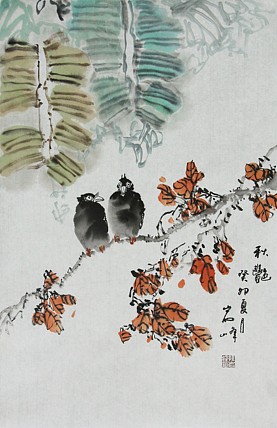 秋艷
癸卯夏月